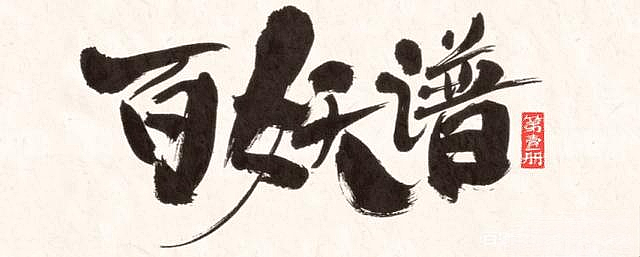 百妖谱
第壹册